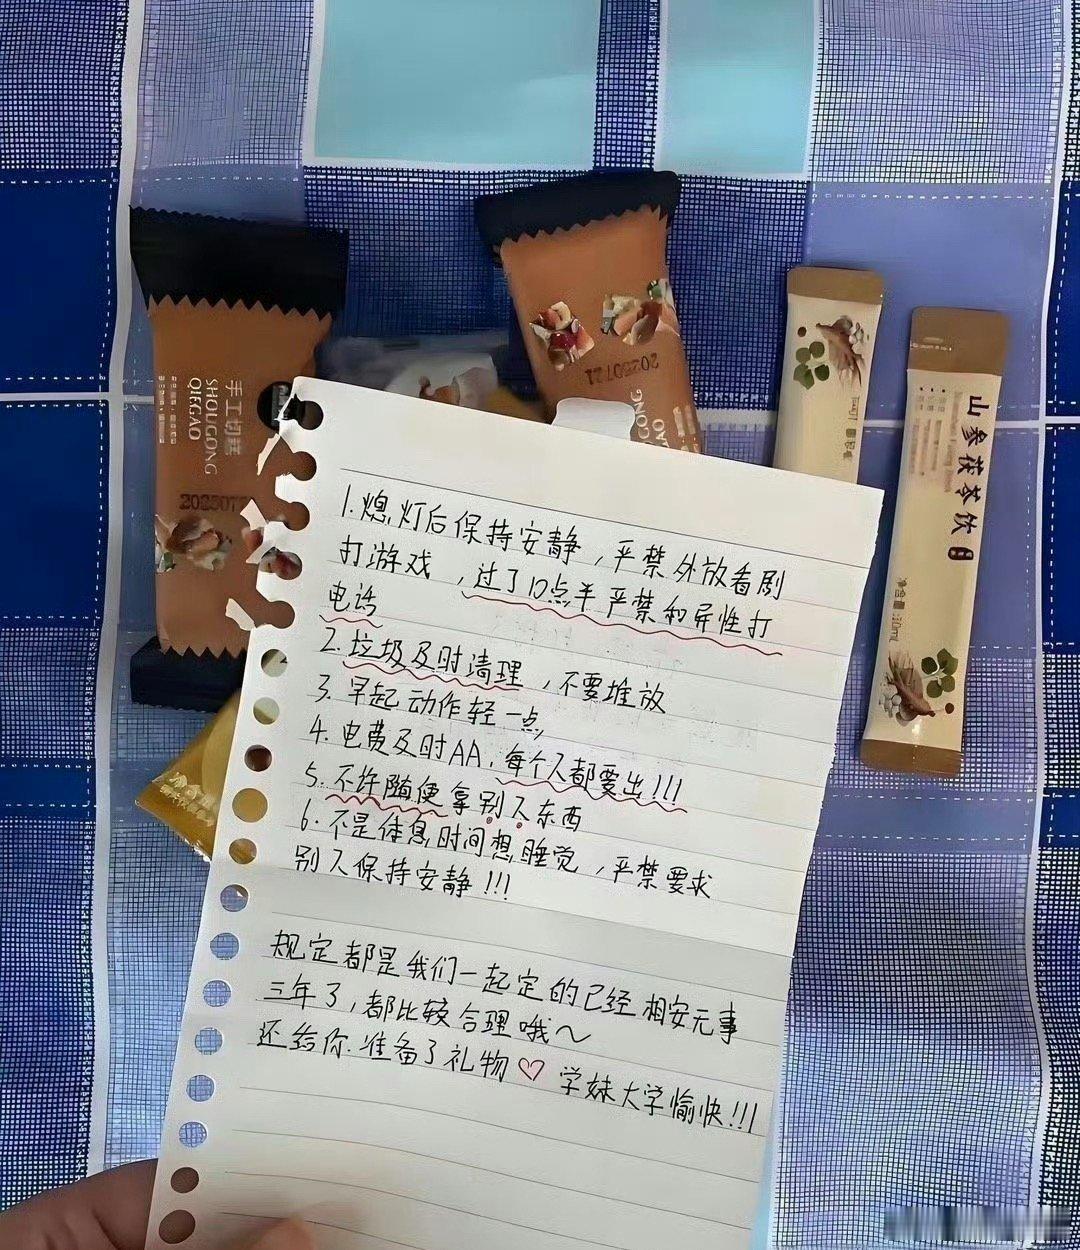 手工切糕
SHOUGONG
QIEGAO
20250721
山参茯苓饮
净含量:30ml
1.熄灯后保持安静，严禁外放看剧
打游戏，过了10点半严禁和异性打
电话
2.垃圾及时清理，不要堆放
3.早起动作轻一点
4.电费及时AA，每个人都要出!!!
5.不许随便拿别人东西
6.不是休息时间想睡觉，严禁要求
别人保持安静!!!
规定都是我们一起定的已经相安元事
三年了，都比较合理哦～
还给你准备了礼物♡ 学妹大学愉快!!!